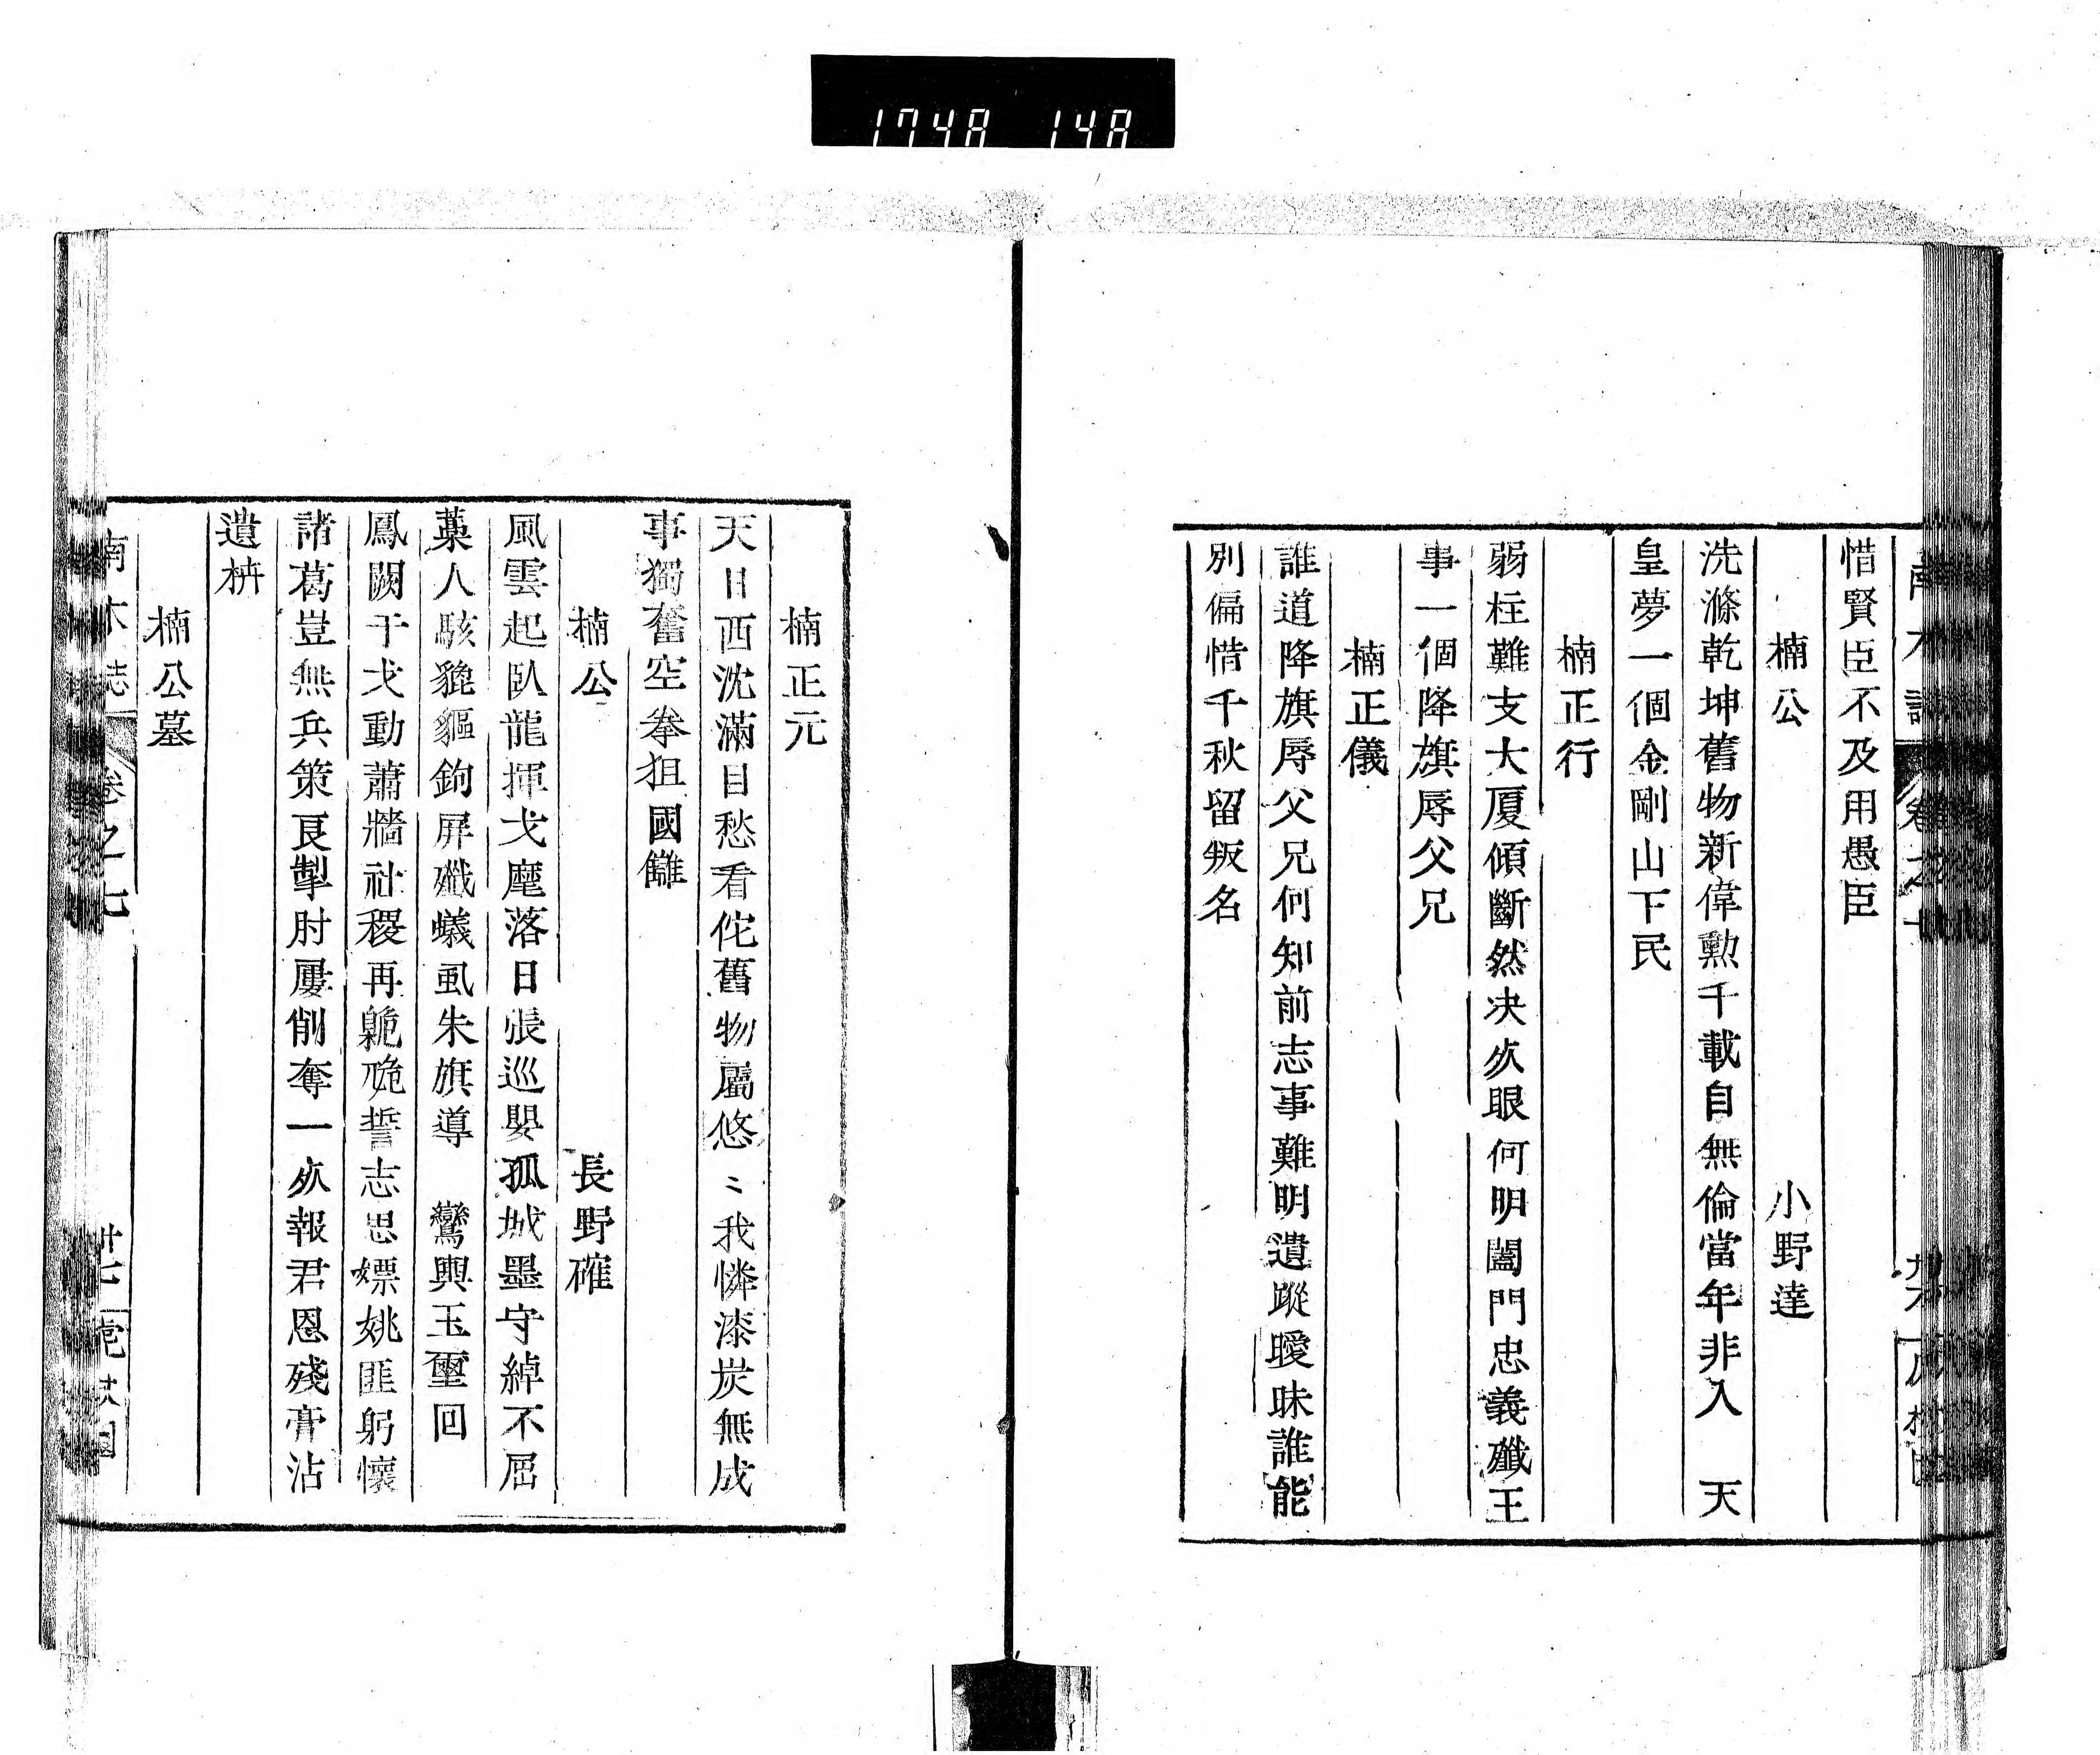 1748 148
惜賢臣不及用愚臣
楠公 小野達
洗滌乾坤舊物新偉勲千載自無倫當年非入 天
皇夢一個金剛山下民
楠正行
弱柱難支大厦傾斷然决死眼何明闔門忠義殱王
事一個降旗辱父兄
楠正儀
誰道降旗辱父兄何知前志事難明遺蹤曖昧誰能
別偏惜千秋留叛名
楠正元
天日西沈滿目愁看佗舊物屬悠〻我憐漆炭無成
事獨奮空拳狙國讎
楠公 長野確
風雲起臥龍揮戈麾落日張巡嬰孤城墨守綽不屈
藁人駭貔貙鉤屏殱蟻虱朱旗導 鸞輿玉璽回
鳳闕干戈動蕭牆社稷再臲卼誓志思嫖姚匪躬懷
諸葛豈無兵策良掣肘屢削奪一死報君恩殘膏沾
遺枿
楠公墓
南木誌 卷之七